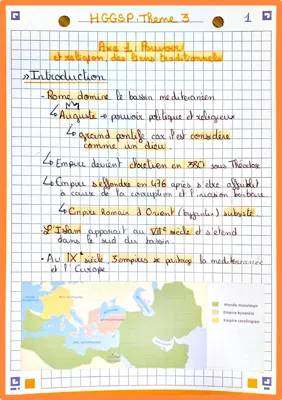 HGGSP. Theme 3
1
Axe 1. Pouvoir
et religion, des liens traditionnels
Introduction
- Rome domine le bassin méditeranéen
Auguste → pouvoir politique et religieux
grand pontife car il est considéré
comme un dieu.
Empire devient chretien en 380 sous Théodose
Empire s'effondre en 476 après s'être affaiblit
à cause de la corruption et l'invasion barbare
Empire Romain d'Orient (byzantin) subsiste
L'Islam apparait au VIIe siècle et s'étend
dans le sud du bassin.
- Au IXe siècle 3 empires se partage la mediterranée
et l'Europe
Monde musulman
Empire byzantin
Empire carolingien